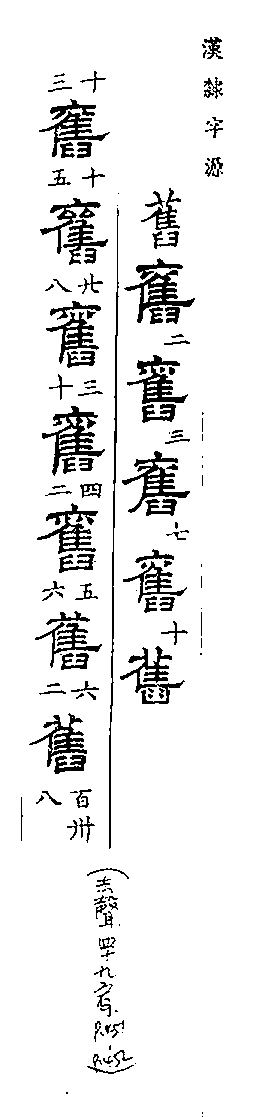 漢隸字源
舊舊二舊三舊七舊十舊
十三舊十五舊廿八舊三十舊四二舊五六舊六二舊百卅八
(去聲四十九宥 P.451 P.452)